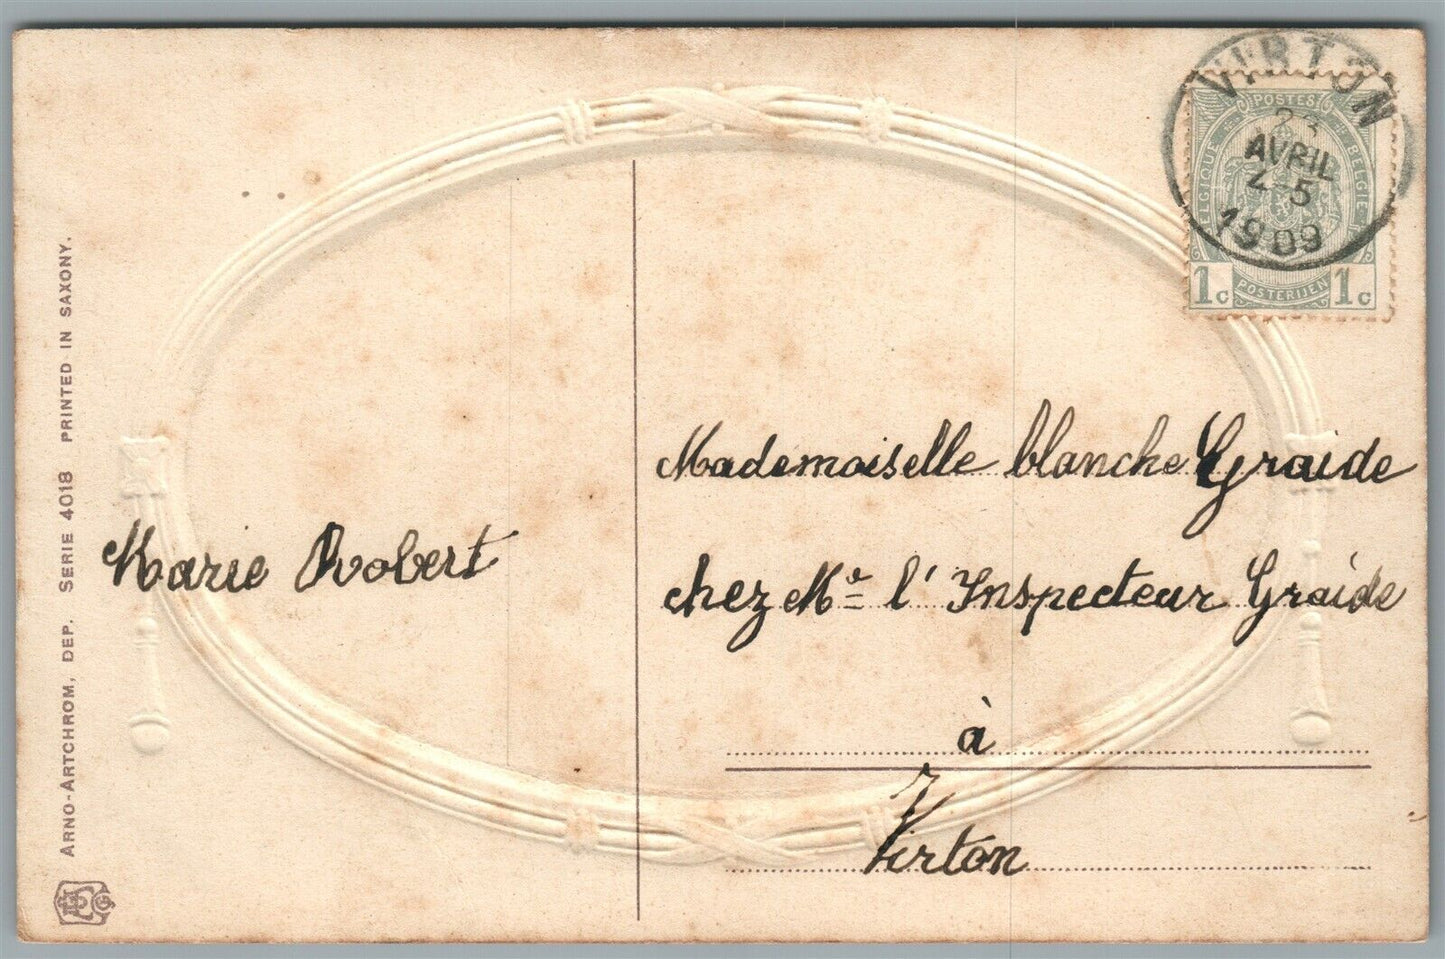 VIRTON
AVRIL
4-5
1909
POSTES
BELGIQUE
BELGIE
1c POSTERIJEN 1c
Mademoiselle blanche Graide
chez Me l' Inspecteur Graide
à
Virton
Marie Robert
ARNO-ARTCHROM, DEP. SERIE 4018 PRINTED IN SAXONY.